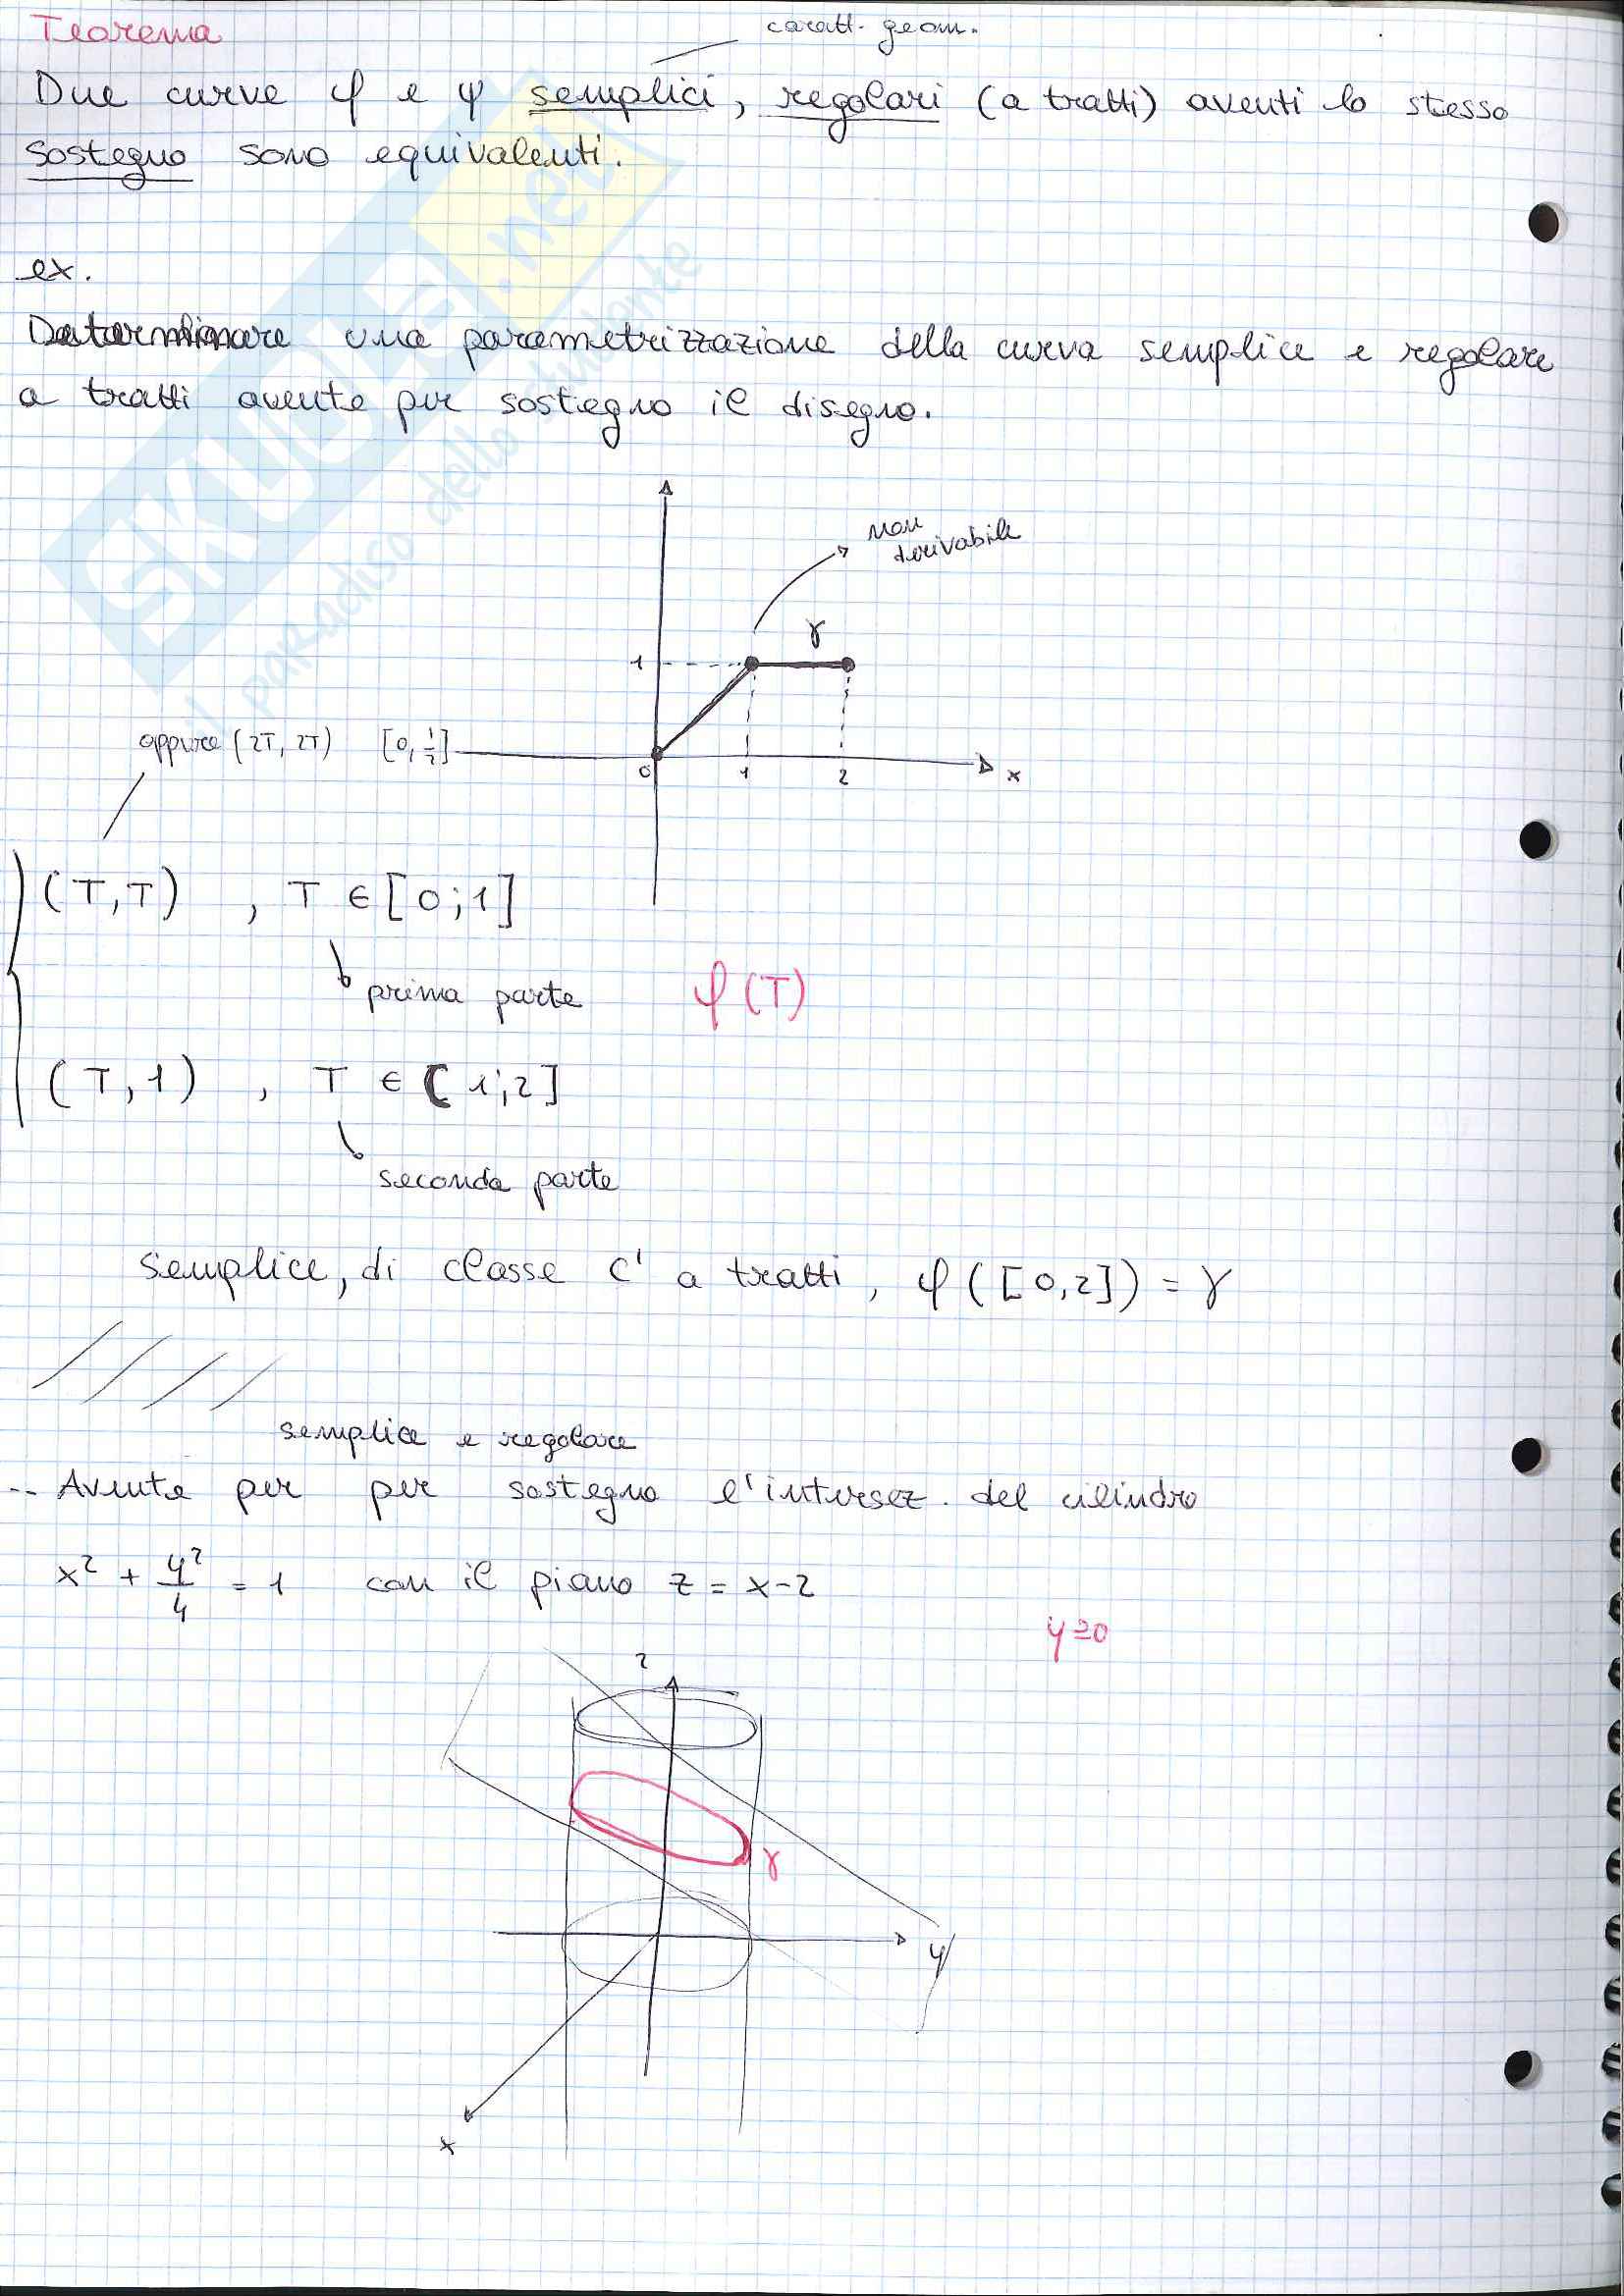 Teorema
caratt. geom.
Due curve φ e ψ semplici, regolari (a tratti) aventi lo stesso
sostegno sono equivalenti.
ex.
Determinare una parametrizzazione della curva semplice e regolare
a tratti avente per sostegno il disegno.
non
derivabile
γ
1
oppure (2T, 2T) [0, 1/2]
0 1 2 x
(T,T) , T ∈ [0;1]
prima parte
φ(T)
(T,1) , T ∈ [1;2]
seconda parte
Semplice, di classe C' a tratti, φ([0,2]) = γ
semplice e regolare
-- Avente per per sostegno l'intersez. del cilindro
x² + y²/4 = 1 con il piano z = x-2
y≥0
z
γ
y
x
SKUOLA.net
il paradiso dello studente